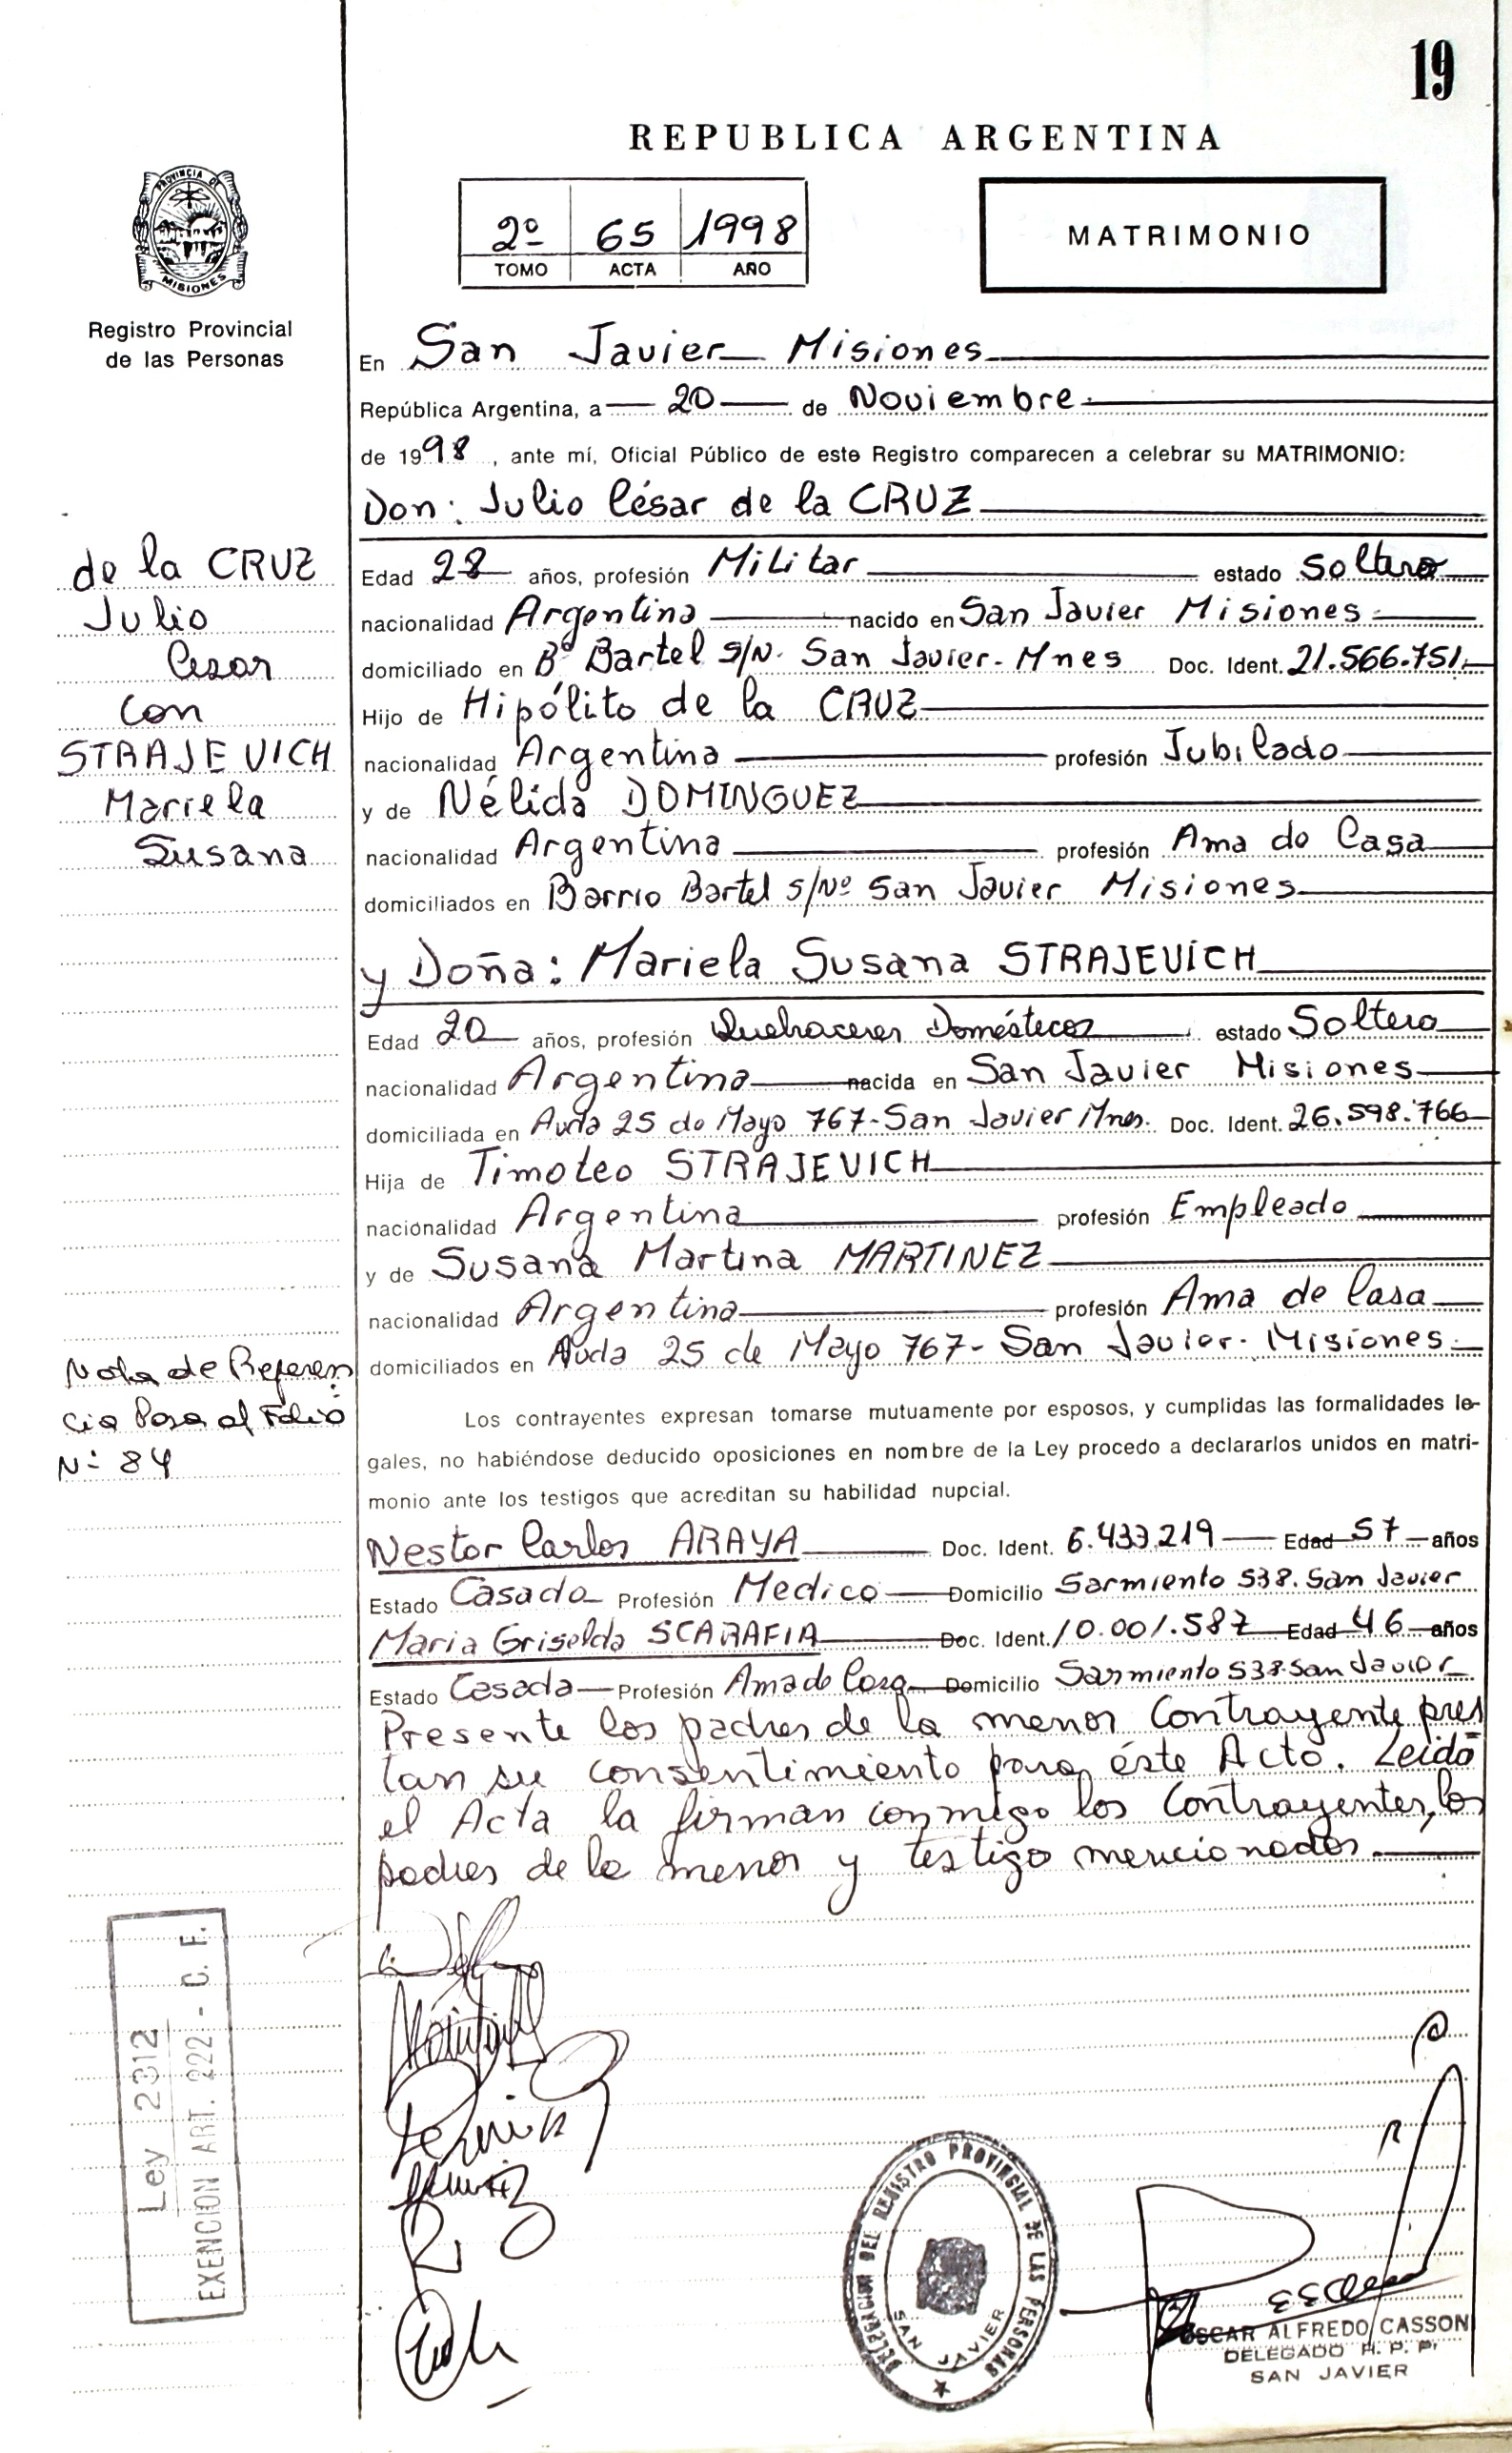 19
REPUBLICA ARGENTINA
2º 65 1998
TOMO ACTA AÑO
MATRIMONIO
PROVINCIA DE
MISIONES
Registro Provincial
de las Personas
En San Javier Misiones
República Argentina, a 20 de Noviembre
de 1998, ante mí, Oficial Público de este Registro comparecen a celebrar su MATRIMONIO:
Don: Julio César de la CRUZ
de la CRUZ
Julio
Cesar
con
STRAJEVICH
Mariela
Susana
Edad 28 años, profesión Militar estado Soltero
nacionalidad Argentina nacido en San Javier Misiones
domiciliado en Bº Bartel S/N. San Javier - Mnes Doc. Ident. 21.566.751
Hijo de Hipólito de la CRUZ
nacionalidad Argentina profesión Jubilado
y de Nélida DOMINGUEZ
nacionalidad Argentina profesión Ama de Casa
domiciliados en Barrio Bartel s/Nº San Javier Misiones
y Doña: Mariela Susana STRAJEVICH
Edad 20 años, profesión Quehaceres Domésticos estado Soltera
nacionalidad Argentina nacida en San Javier Misiones
domiciliada en Avda 25 de Mayo 767-San Javier Mnes. Doc. Ident. 26.598.766
Hija de Timoteo STRAJEVICH
nacionalidad Argentina profesión Empleado
y de Susana Martina MARTINEZ
nacionalidad Argentina profesión Ama de Casa
domiciliados en Avda 25 de Mayo 767- San Javier - Misiones
Nota de Referen
cia Pasa al Folio
Nº 84
Los contrayentes expresan tomarse mutuamente por esposos, y cumplidas las formalidades le-
gales, no habiéndose deducido oposiciones en nombre de la Ley procedo a declararlos unidos en matri-
monio ante los testigos que acreditan su habilidad nupcial.
Nestor Carlos ARAYA Doc. Ident. 6.433.219 Edad 57 años
Estado Casado Profesión Medico Domicilio Sarmiento 538. San Javier
Maria Griselda SCARAFIA Doc. Ident. 10.001.587 Edad 46 años
Estado Casada Profesión Ama de Casa Domicilio Sarmiento 538. San Javier
Presente los padres de la menor Contrayente pres
tan su consentimiento para éste Acto. Leido
el Acta la firman conmigo los Contrayentes, los
padres de la menor y testigo mencionados
Ley 2312
EXENCION ART. 222 - C. F.
DELEGACION DEL REGISTRO PROVINCIAL DE LAS PERSONAS
SAN JAVIER
OSCAR ALFREDO CASSON
DELEGADO R. P. P.
SAN JAVIER